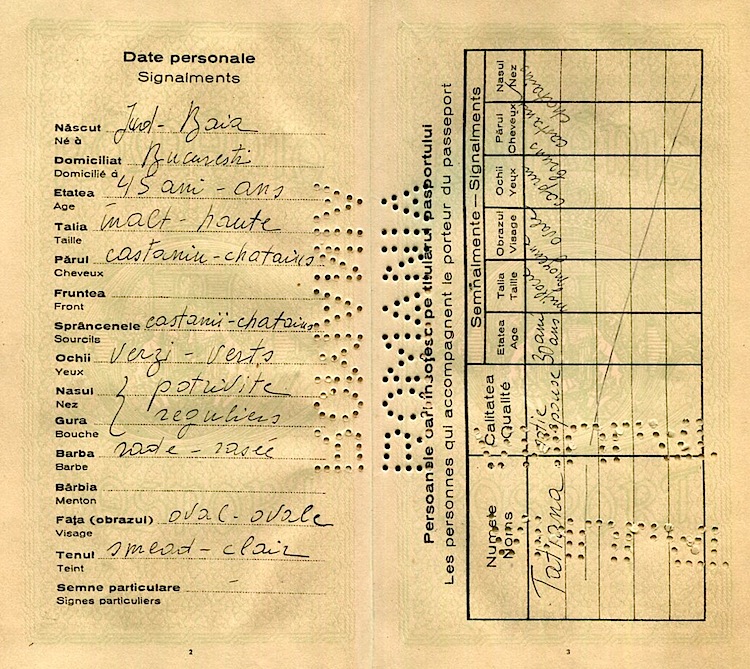 Date personale
Signalments
Născut Jud - Baia
Né à
Domiciliat Bucuresti
Domicilié à
Etatea 45 ani - ans
Age
Talia inalt - haute
Taille
Părul castaniu - chatains
Cheveux
Fruntea
Front
Sprâncenele castanii - chatains
Sourcils
Ochii verzi - verts
Yeux
Nasul potrivite
Nez
Gura reguliers
Bouche
Barba rade - rasée
Barbe
Bărbia
Menton
Fața (obrazul) oval - ovale
Visage
Tenul smead - clair
Teint
Semne particulare -
Signes particuliers
2
ROMANIA
ROMANIA
Persoanele cari însoțesc pe titularul pasportului
Les personnes qui accompagnent le porteur du passeport
Semnalmente - Signalments
Numele
Noms
Calitatea
Qualité
Etatea
Age
Talia
Taille
Obrazul
Visage
Ochii
Yeux
Părul
Cheveux
Nasul
Nez
Tatiana
soție
épouse
30 ani
ans
3